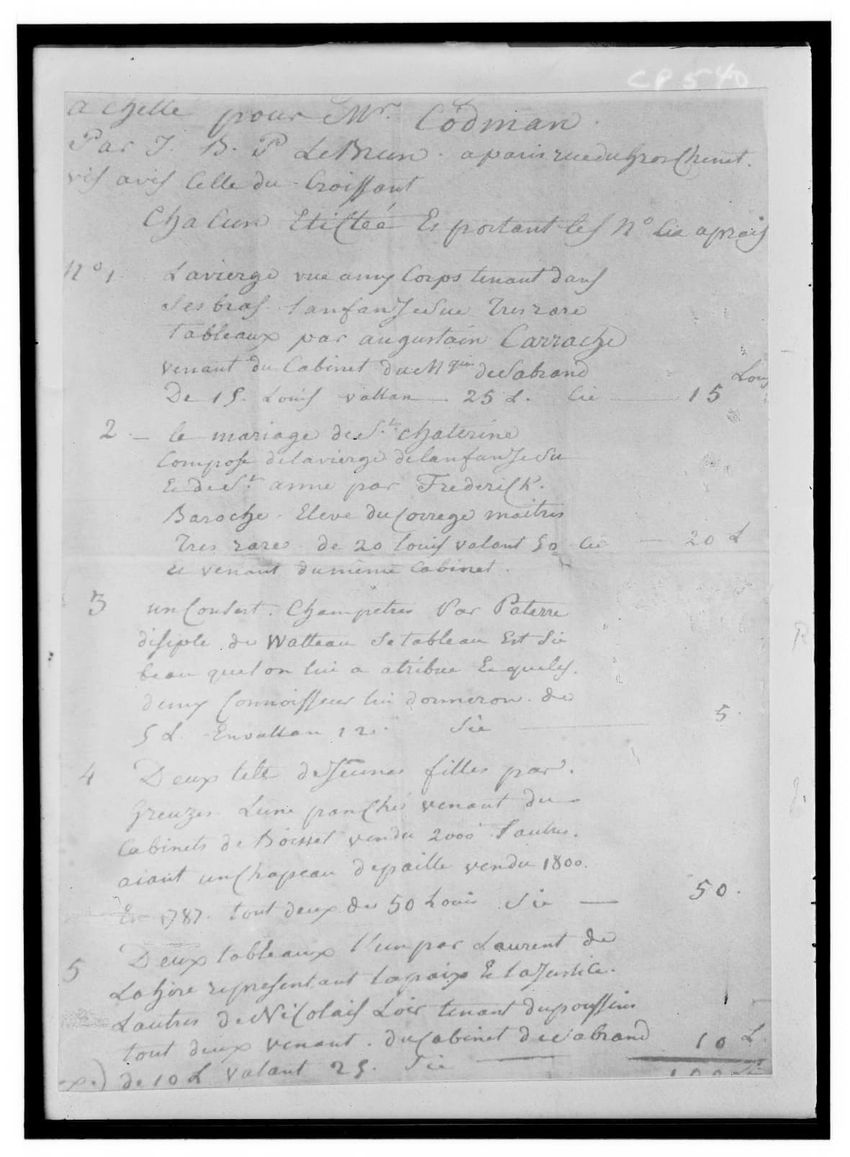 CP 540
achette pour Mr. Codman.
Par J. B. P LeBrun. a paris rue du Gros Chenet.
vis avis Celle du Croissant
Chacun Etictée Es portant les No. Cia aprais
No 1. Lavierge vue amy Corps tenant dans
Ses bras lanfan Jesue Tres rare
tableaux par augustain Carrache
venant du Cabinet du Mquis de Sabrand
De 15. Louis vallan 25 L. Cie 15 Louis
2 le mariage de Ste. Chaterine
Compose de lavierge de lanfan Jesu
E de Ste anne par Frederick.
Baroche. Eleve du Correge maitres
Tres rare. de 20 louis valant 50 Cie 20 L
et venant du même Cabinet.
3 un Consert. Champetres Par Paterre
disiple de Watteau Setableau Est Sie
beau quelon lui a atribue E queles.
demy Connoisseur lui donneron. de
5 L. Envallan 12. Sie 5.
4 Deux tete de Jeunes filles par.
Greuzes Lune panché venant du
Cabinets de Boisset vendu 2000 Lautres.
aiant un Chapeau depaille vendu 1800.
En 1787. tout deux de 50 Louis Sie 50.
5 Deux tableaux l'un par Laurent de
Lahire representant lapaix E la Justice.
Lautres de Nicolais Loir tenant du poussin
tout deux venant. du Cabinet de Sabrand
de 10 L valant 25. Sie 10 L.